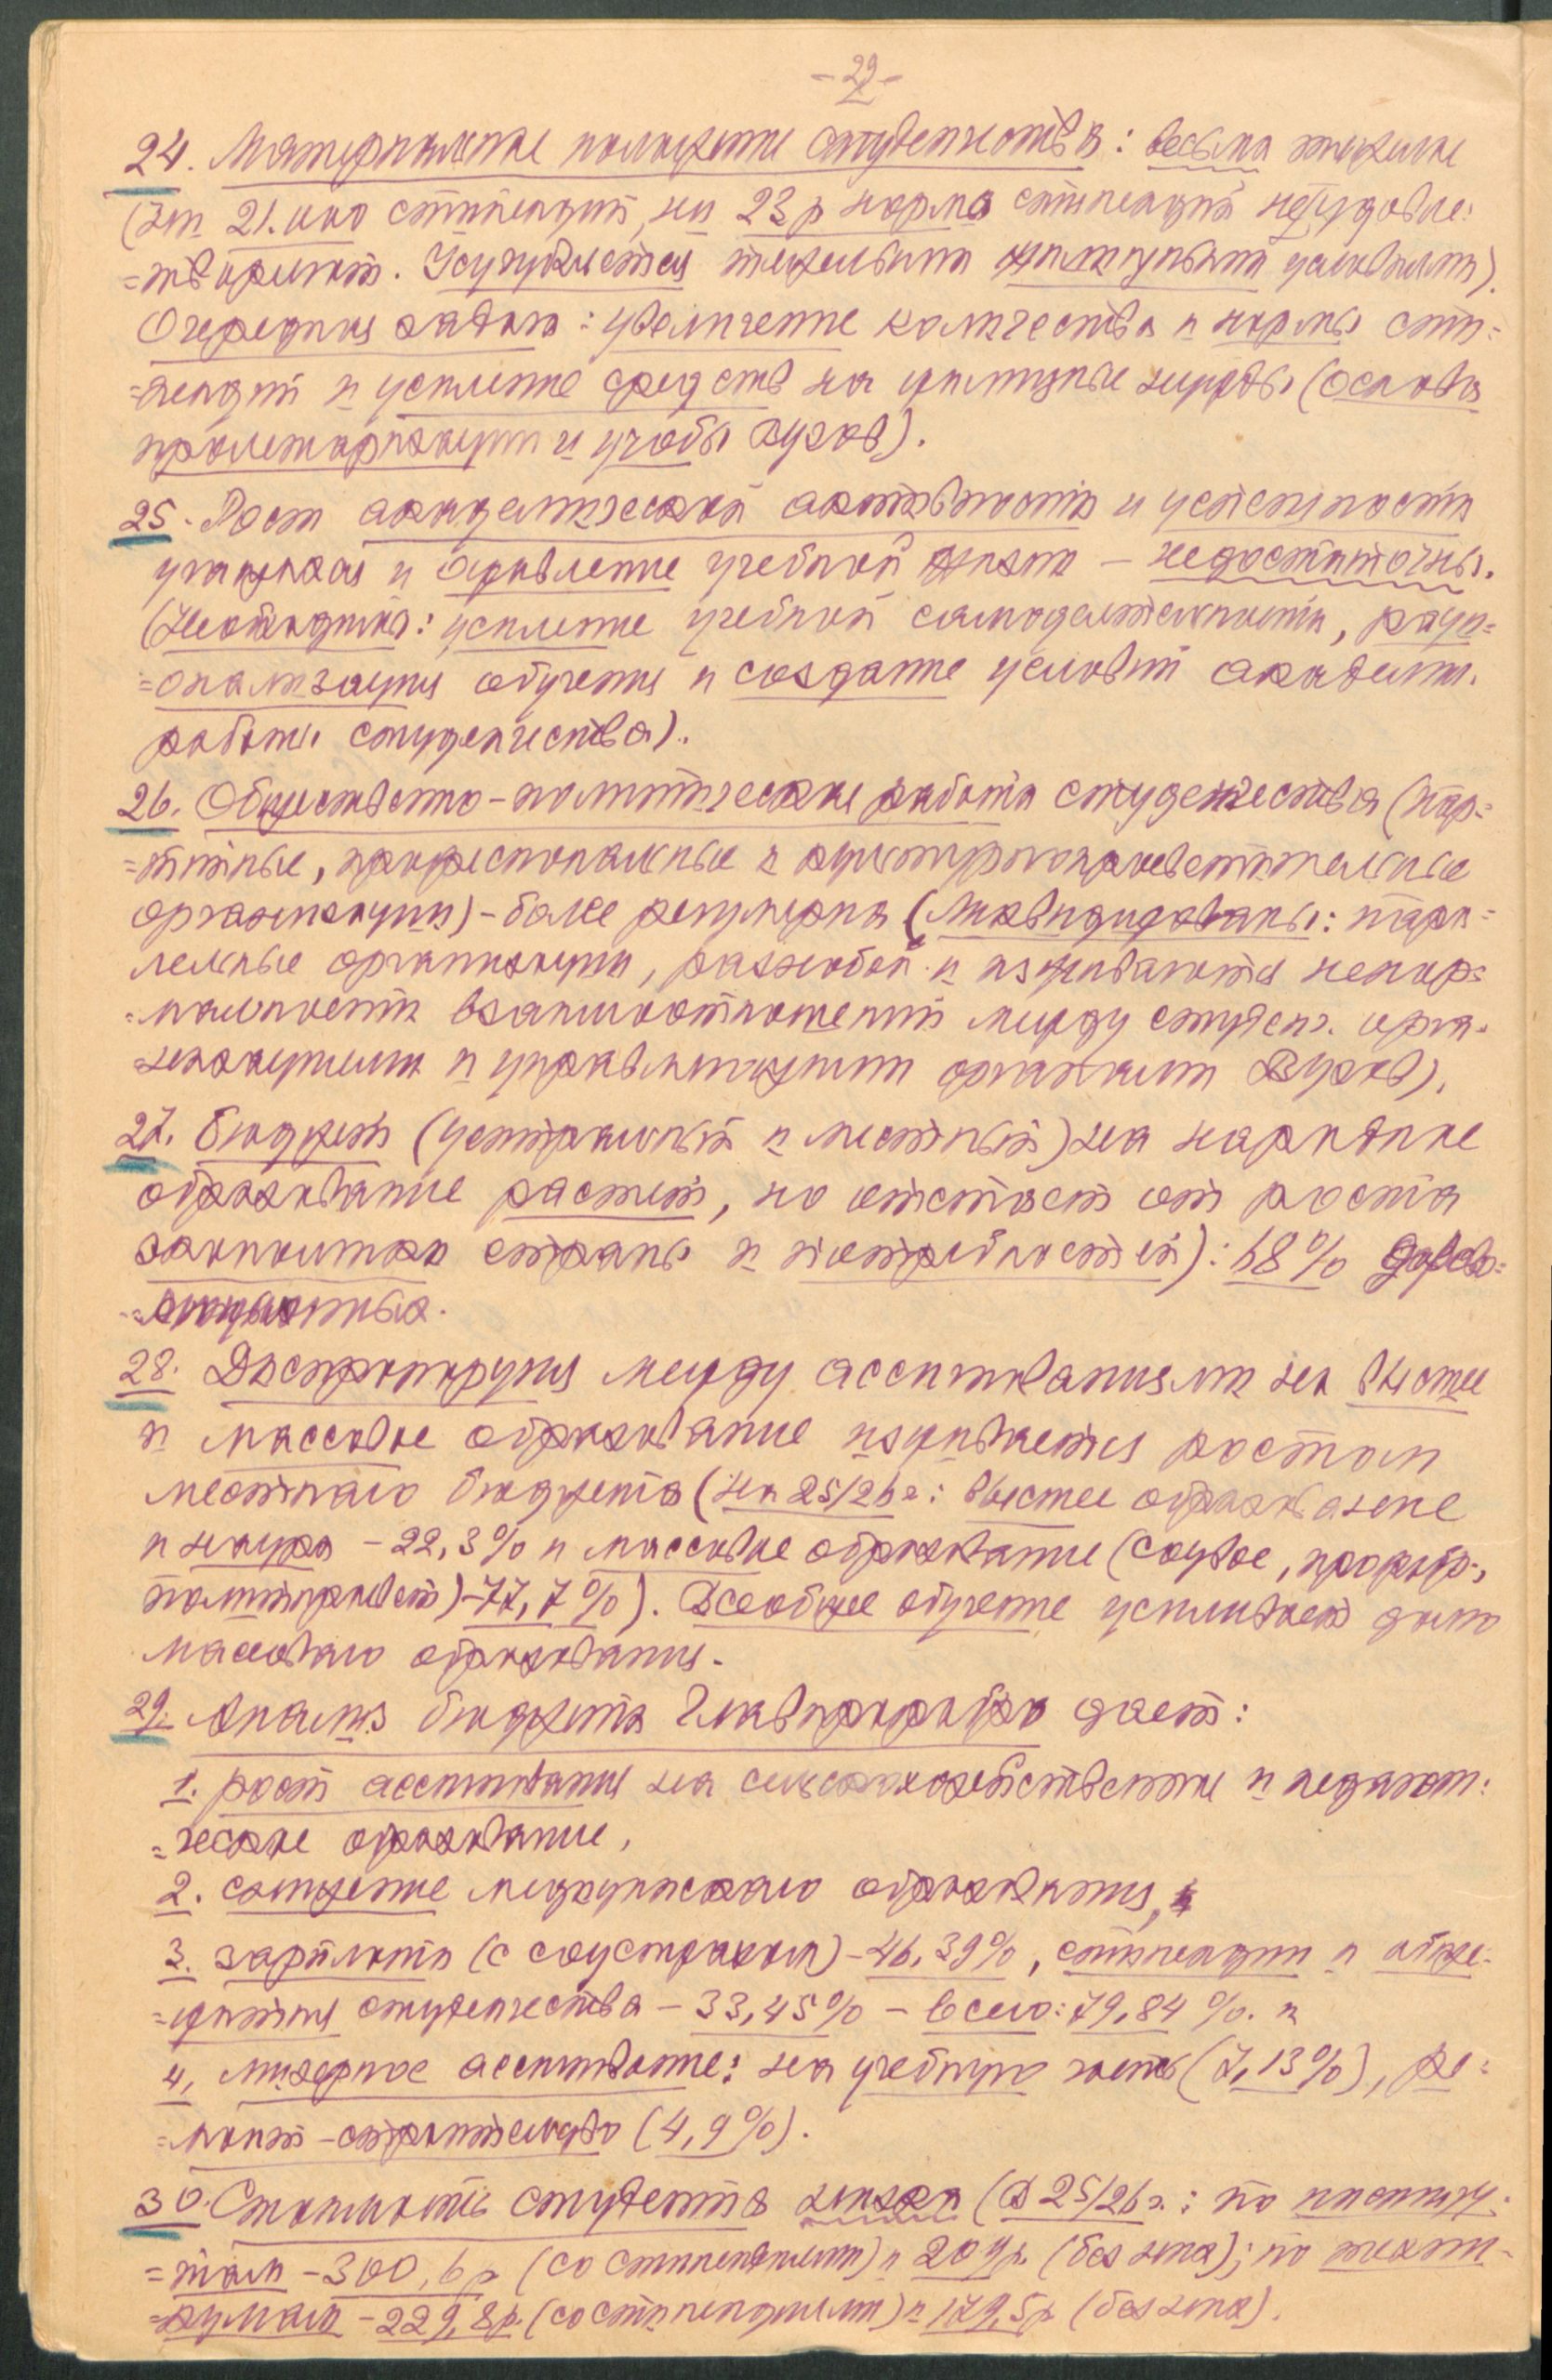 - 29 -
24. Материальное положение студенчества: весьма тяжелое
(ни 21. кко стипендий, ни 23 р норма стипендий не удовле=
=творяют. Усугубляется тяжелыми жилищными условиями).
Очередная задача: увеличение количества и нормы сти=
=пендий и усиление средств на жилищные нужды (основа
пролетаризации и учебы вузов).
25. Рост академической активности и успешности
учащихся и оживление учебной жизни – недостаточны.
(Необходимо: усиление учебной самодеятельности, раци=
=онализация обучения и создание условий академич.
работы студенчества).
26. Общественно-политическая работа студенчества (пар=
=тийные, профессиональные и культурнопросветительные
организации) - более регулярна (ликвидированы: парал=
лельные организации, разнобой и изживаются ненор=
=мальности взаимоотношений между студенч. орга=
низациями и управляющими органами Вузов).
27. Бюджет (центральный и местный) на народное
образование растет, но отстает от роста
экономики страны и потребностей): 68% довоен=
28. Диспропорция между ассигнованиями на высшее
и массовое образование изживается ростом
местного бюджета (на 25/26 г: высшее образование
и наука - 22,3% и массовое образование (соцвос, профобр.,
политпросвет) - 77,7%). Всеобщее обучение усиливает долю
массового образования.
29. Анализ бюджета Главпрофобра дает:
1. рост ассигнования на сельскохозяйственное и педагоги=
=ческое образование,
2. снижение медицинского образования,
3. зарплата (с соцстрахом) - 46,39%, стипендии и обще=
=жития студенчества - 33,45% - всего: 79,84%. и
4. мизерное ассигнование: на учебную часть (7,13%), ре=
=монт-строительство (4,9%).
30. Стоимость студента низка (в 25/26 г.: по институ=
=там - 300,6 р (со стипендиями) и 209 р. (без них); по техни=
=кумам - 229,8 р. (со стипендиями) и 179,5 р (без них).